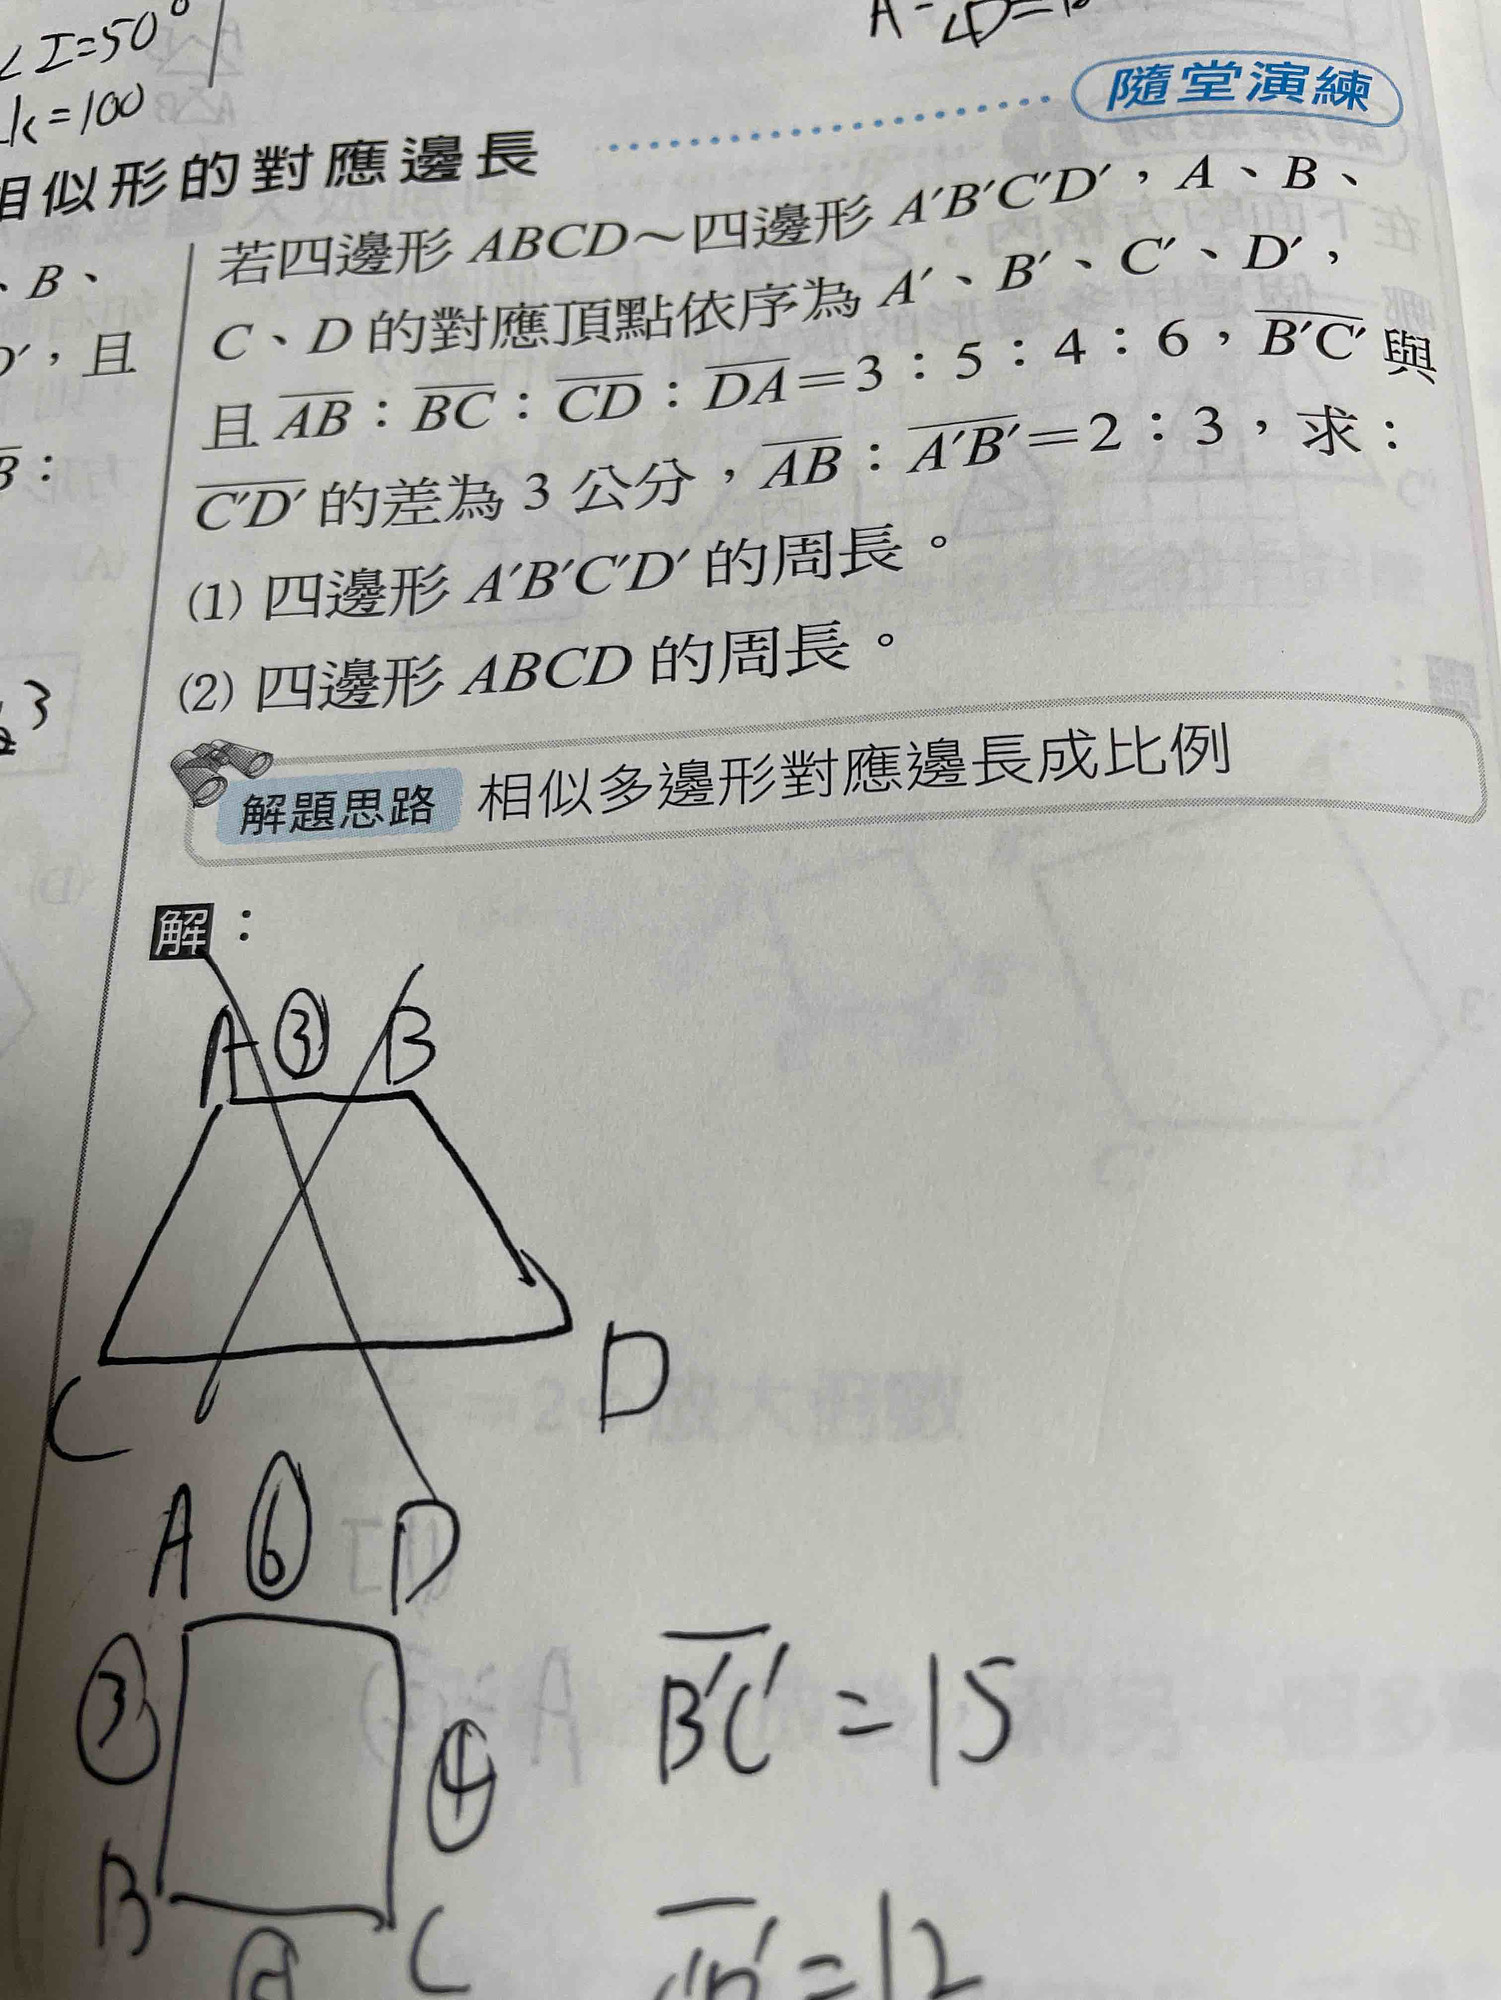 ∠I=50°
k=100
A-
∠D=1
隨堂演練
相似形的對應邊長
、B、
D′,且
B:
3
若四邊形 ABCD～四邊形 A′B′C′D′,A、B、
C、D 的對應頂點依序為 A′、B′、C′、D′,
且 AB:BC:CD:DA=3:5:4:6,B′C′ 與
C′D′ 的差為 3 公分,AB:A′B′=2:3,求:
(1) 四邊形 A′B′C′D′ 的周長。
(2) 四邊形 ABCD 的周長。
解題思路 相似多邊形對應邊長成比例
解:
A ③ B
C D
A ⑥ D
③ ④
B C
B′C′=15
=12